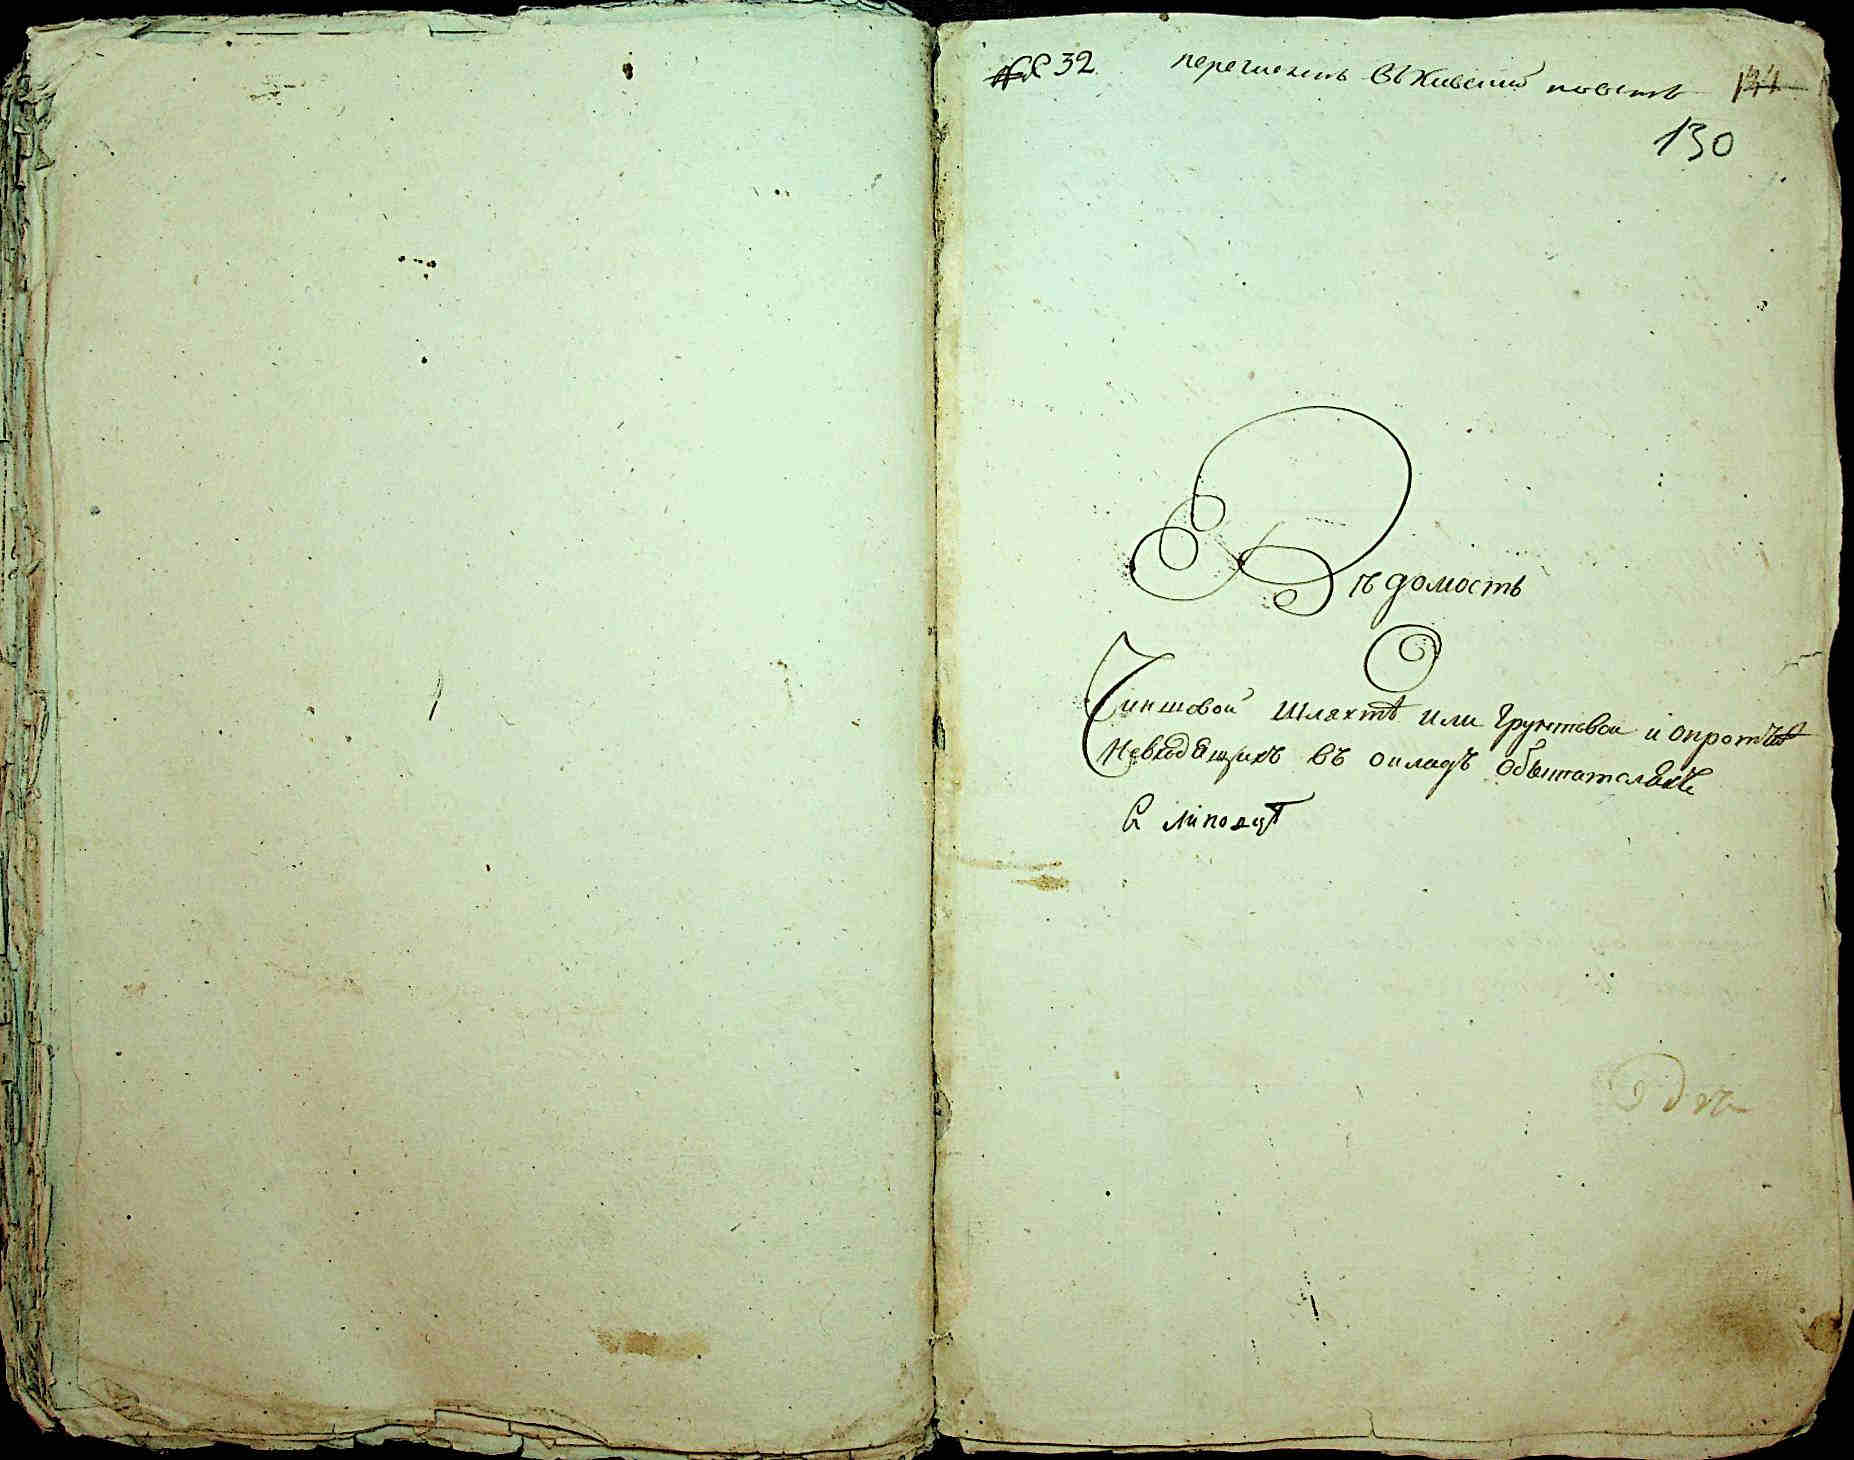 № 32. перечисленъ въ Киевский поветъ 131
130
Вѣдомость
О
Чиншовой Шляхтѣ или Грунтовой и опротчихъ
Невходящихъ въ окладъ Обывателяхъ